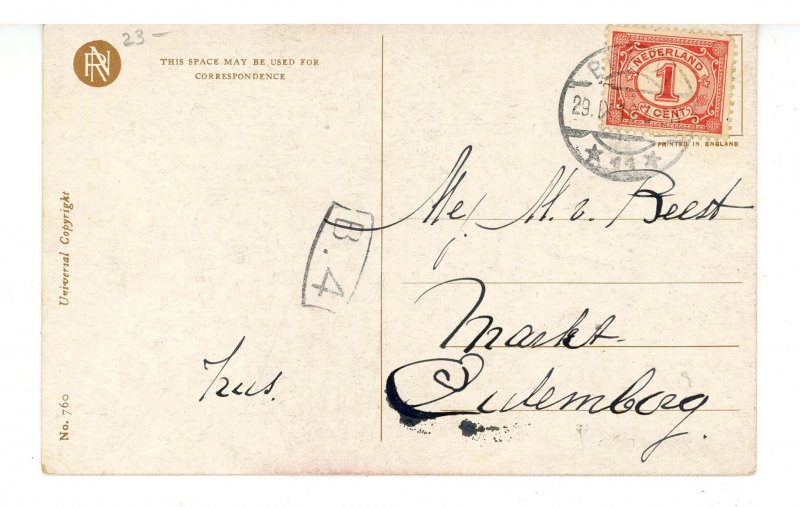 23-
THIS SPACE MAY BE USED FOR
CORRESPONDENCE
NEDERLAND
1
CENT
29.D
11
PRINTED IN ENGLAND
Mej M. v. Beest
Markt
Culemborg.
B.4
Universal Copyright
No. 760